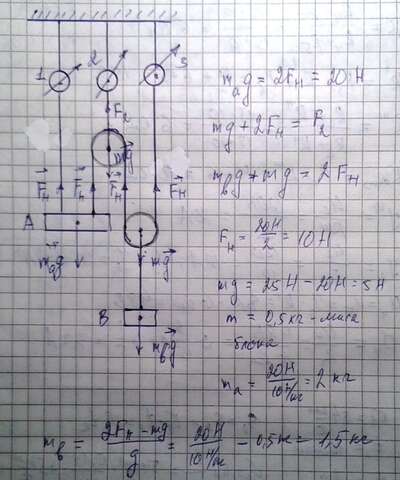 1
2
3
F₂
mg
F⃗н
F⃗н
F⃗н
F⃗н
A
m⃗ag
mg⃗
B
mвg⃗
mag = 2Fн = 20 Н
mg + 2Fн = F₂
mвg + mg = 2Fн
Fн = 20Н/2 = 10Н
mg = 25Н − 20Н = 5Н
m = 0,5 кг - маса
блока
ma = 20Н/10 Н/кг = 2 кг
mв = (2Fн − mg)/g = 20Н/10 Н/кг − 0,5 кг = 1,5 кг